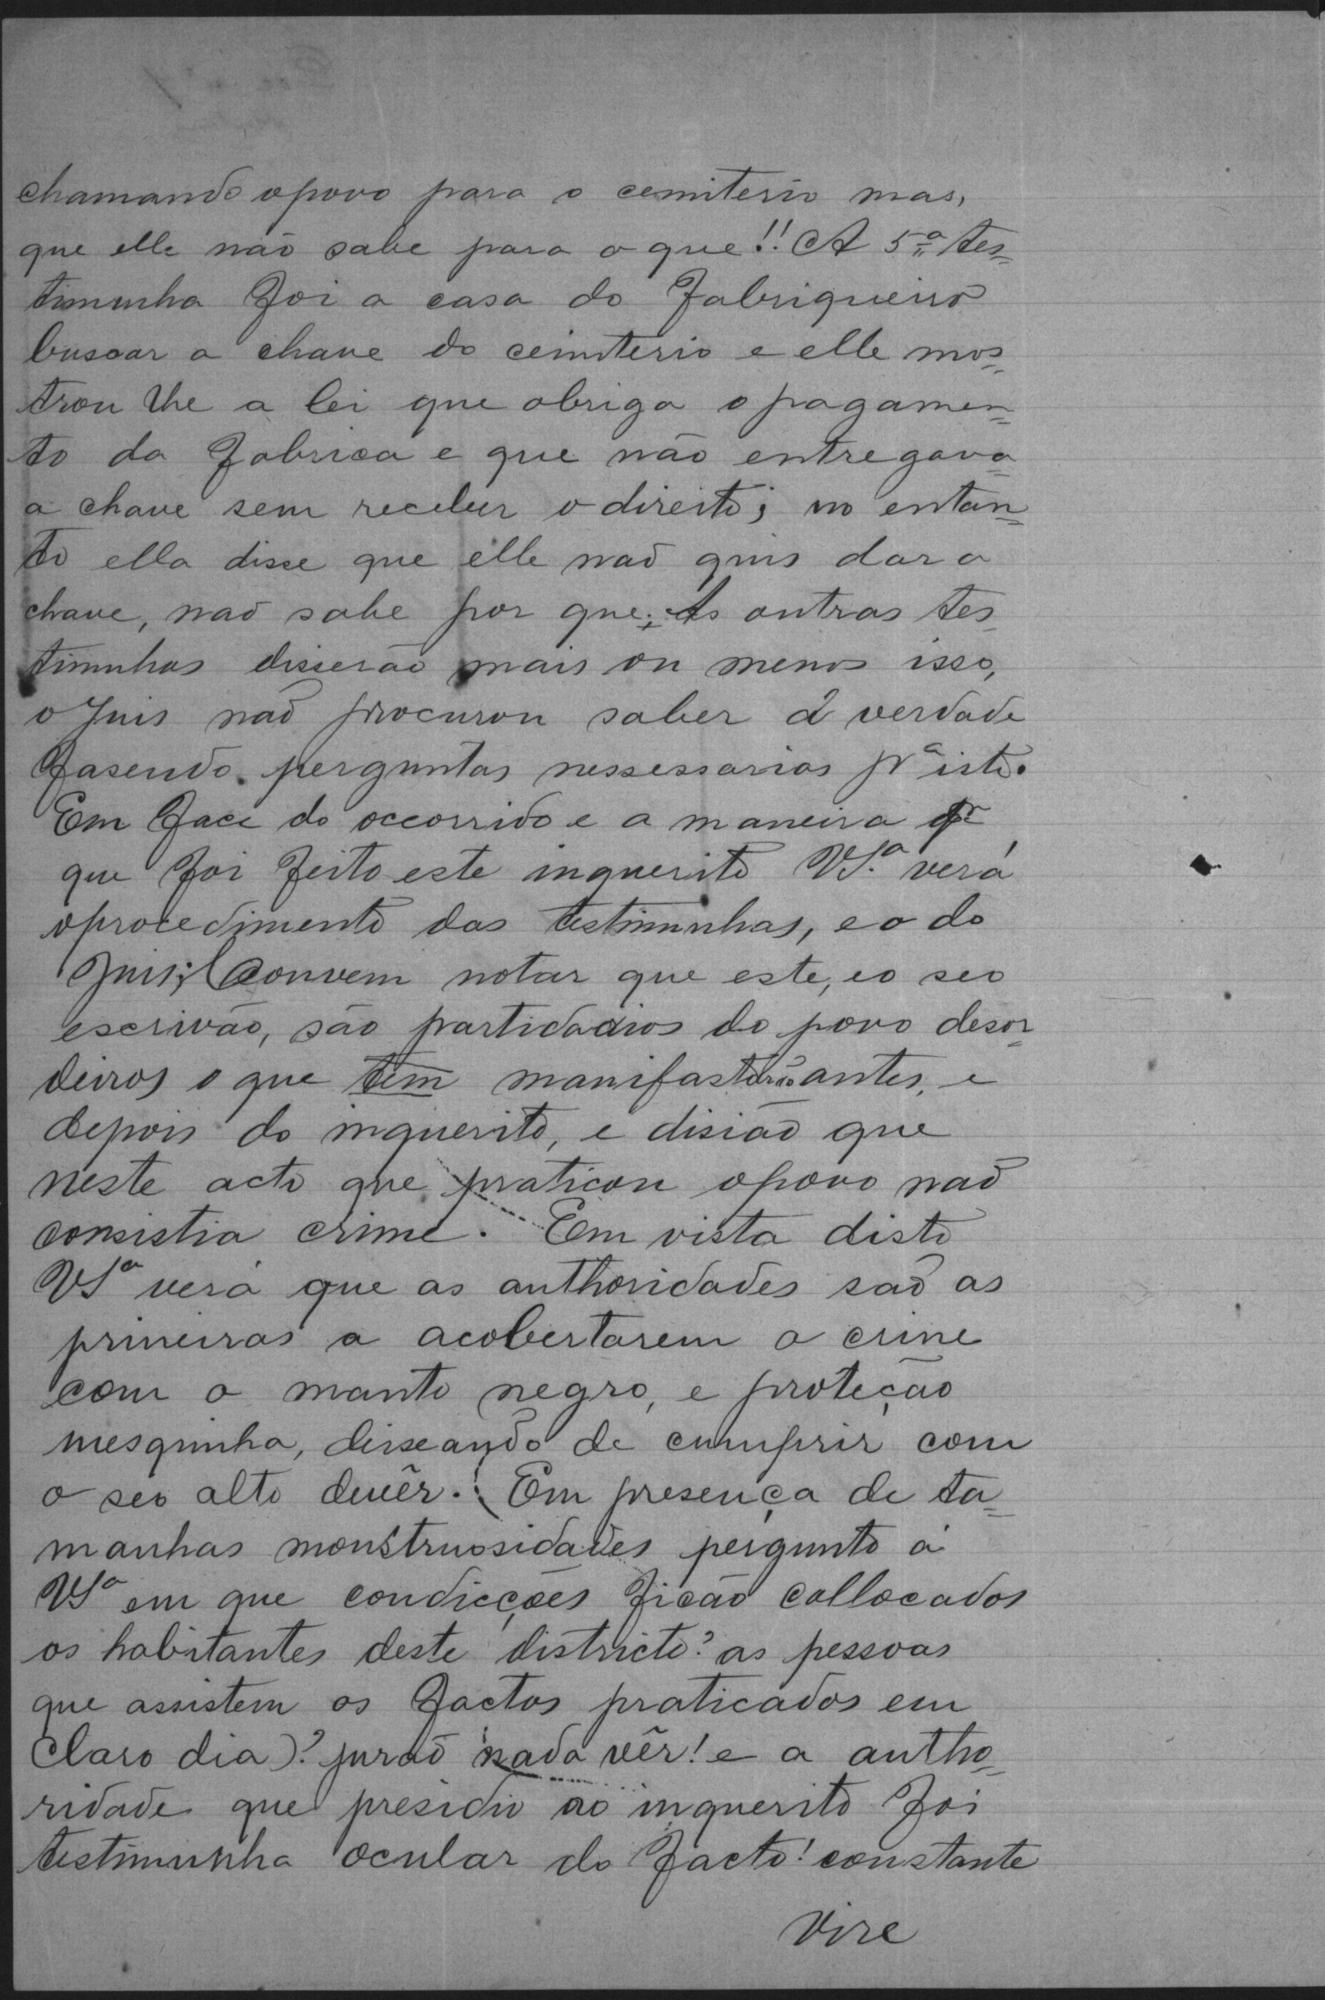 chamando opovo para o cemiterio mas,
que elle não sabe para o que!! A 5ª tes=
timunha foi a casa do fabriqueiro
buscar a chave do cemiterio e elle mos=
trou lhe a lei que obriga o pagamen=
to da fabrica e que não entregava
a chave sem receber o direito; no entan=
to ella disse que elle naõ quis dar a
chave, naõ sabe por que; As outras tes
timunhas disseraõ mais ou menos isso,
o Juis naõ procurou saber á verdade
fasendo perguntas nessessarias pª isto.
Em face do occorrido e a maneira pr
que foi feito este inquerito VSª verá
oprocedimento das testimunhas, e o do
Juis; Convem notar que este, eo seo
escrivão, são partidarios do povo desor=
deiros o que tem manifasterão antes, e
depois do inquerito, e disião que
neste acto que praticou opovo naõ
consistia crime. Em vista disto
VSª verá que as authoridades saõ as
primeiras a acobertarem o crime
com o manto negro, e proteção
mesquinha, deixando de cumprir com
o seo alto devêr. Em presença de ta=
manhas monstruosidades pergunto á
VSª em que condicções ficão collocados
os habitantes deste districto? as pessoas
que assistem os factos praticados em
claro dia)? juraõ nada vêr! e a autho=
ridade que presidio ao inquerito foi
testimunha ocular do facto! constante
Vire